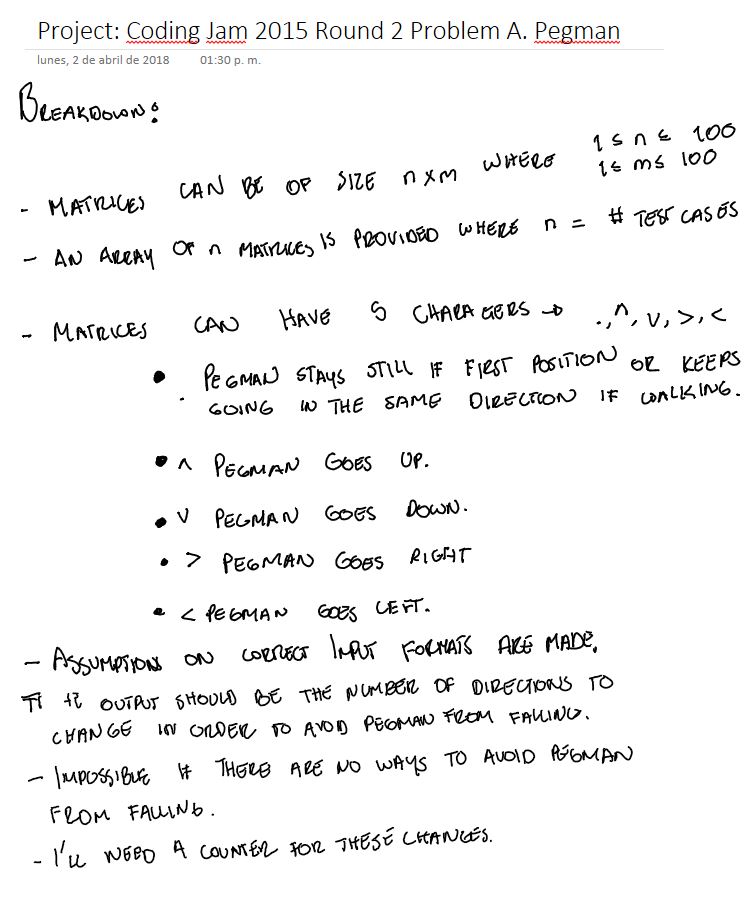 Project: Coding Jam 2015 Round 2 Problem A. Pegman
lunes, 2 de abril de 2018 01:30 p. m.
BREAKDOWN:
- MATRICES CAN BE OF SIZE n x m WHERE 1 ≤ n ≤ 100
1 ≤ m ≤ 100
- AN ARRAY OF n MATRICES IS PROVIDED WHERE n = # TEST CASES
- MATRICES CAN HAVE 5 CHARACTERS → ., ^, v, >, <
• . PEGMAN STAYS STILL IF FIRST POSITION OR KEEPS
GOING IN THE SAME DIRECTION IF WALKING.
• ^ PEGMAN GOES UP.
• v PEGMAN GOES DOWN.
• > PEGMAN GOES RIGHT
• < PEGMAN GOES LEFT.
- ASSUMPTIONS ON CORRECT INPUT FORMATS ARE MADE.
OUTPUT SHOULD BE THE NUMBER OF DIRECTIONS TO
CHANGE IN ORDER TO AVOID PEGMAN FROM FALLING.
- IMPOSSIBLE IF THERE ARE NO WAYS TO AVOID PEGMAN
FROM FALLING.
- I'LL NEED A COUNTER FOR THESE CHANGES.